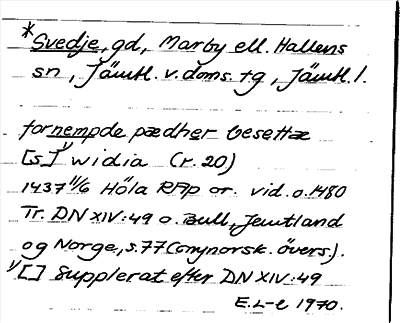 *Svedje, gd, Marby ell. Hallens
sn, Jämtl. v. doms. tg, Jämtl. l.
fornempde pædher besettæ
[s]¹⁾ widia (r. 20)
1437 11/6 Höla RAp or. vid. o. 1480
Tr. DN XIV:49 o. Bull, Jemtland
og Norge, s. 77 (onynorsk. övers.).
¹⁾ [ ] Supplerat efter DN XIV:49
E.L-e 1970.